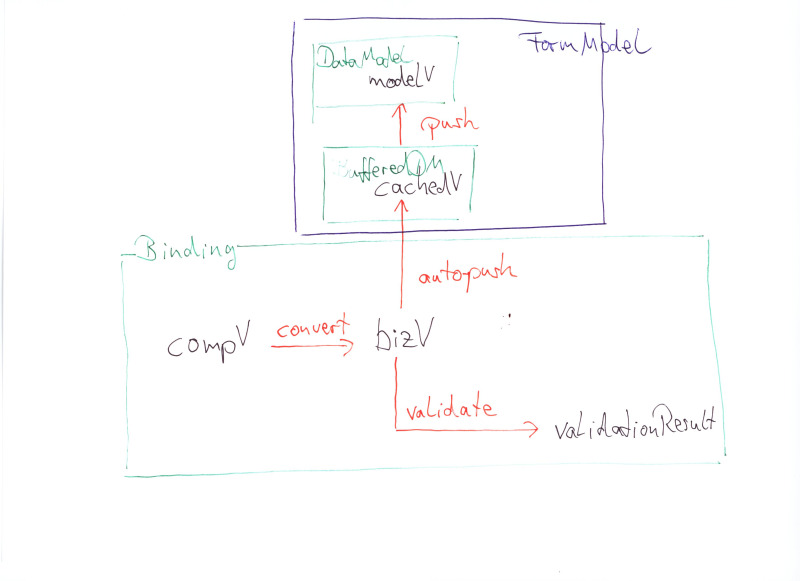 FormModel
DataModel
modelV
push
BufferedDM
cachedV
Binding
autopush
compV
convert
bizV
validate
validationResult